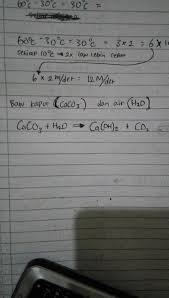 60°C - 30°C = 30°C =
60°C - 30°C = 30°C = 3 x 2 = 6 x
setiap 10°C → 2x lebih cepat
6 x 2 M/det = 12 M/det
Batu kapur (CaCO3) dan air (H2O)
CaCO3 + H2O → Ca(OH)2 + CO2